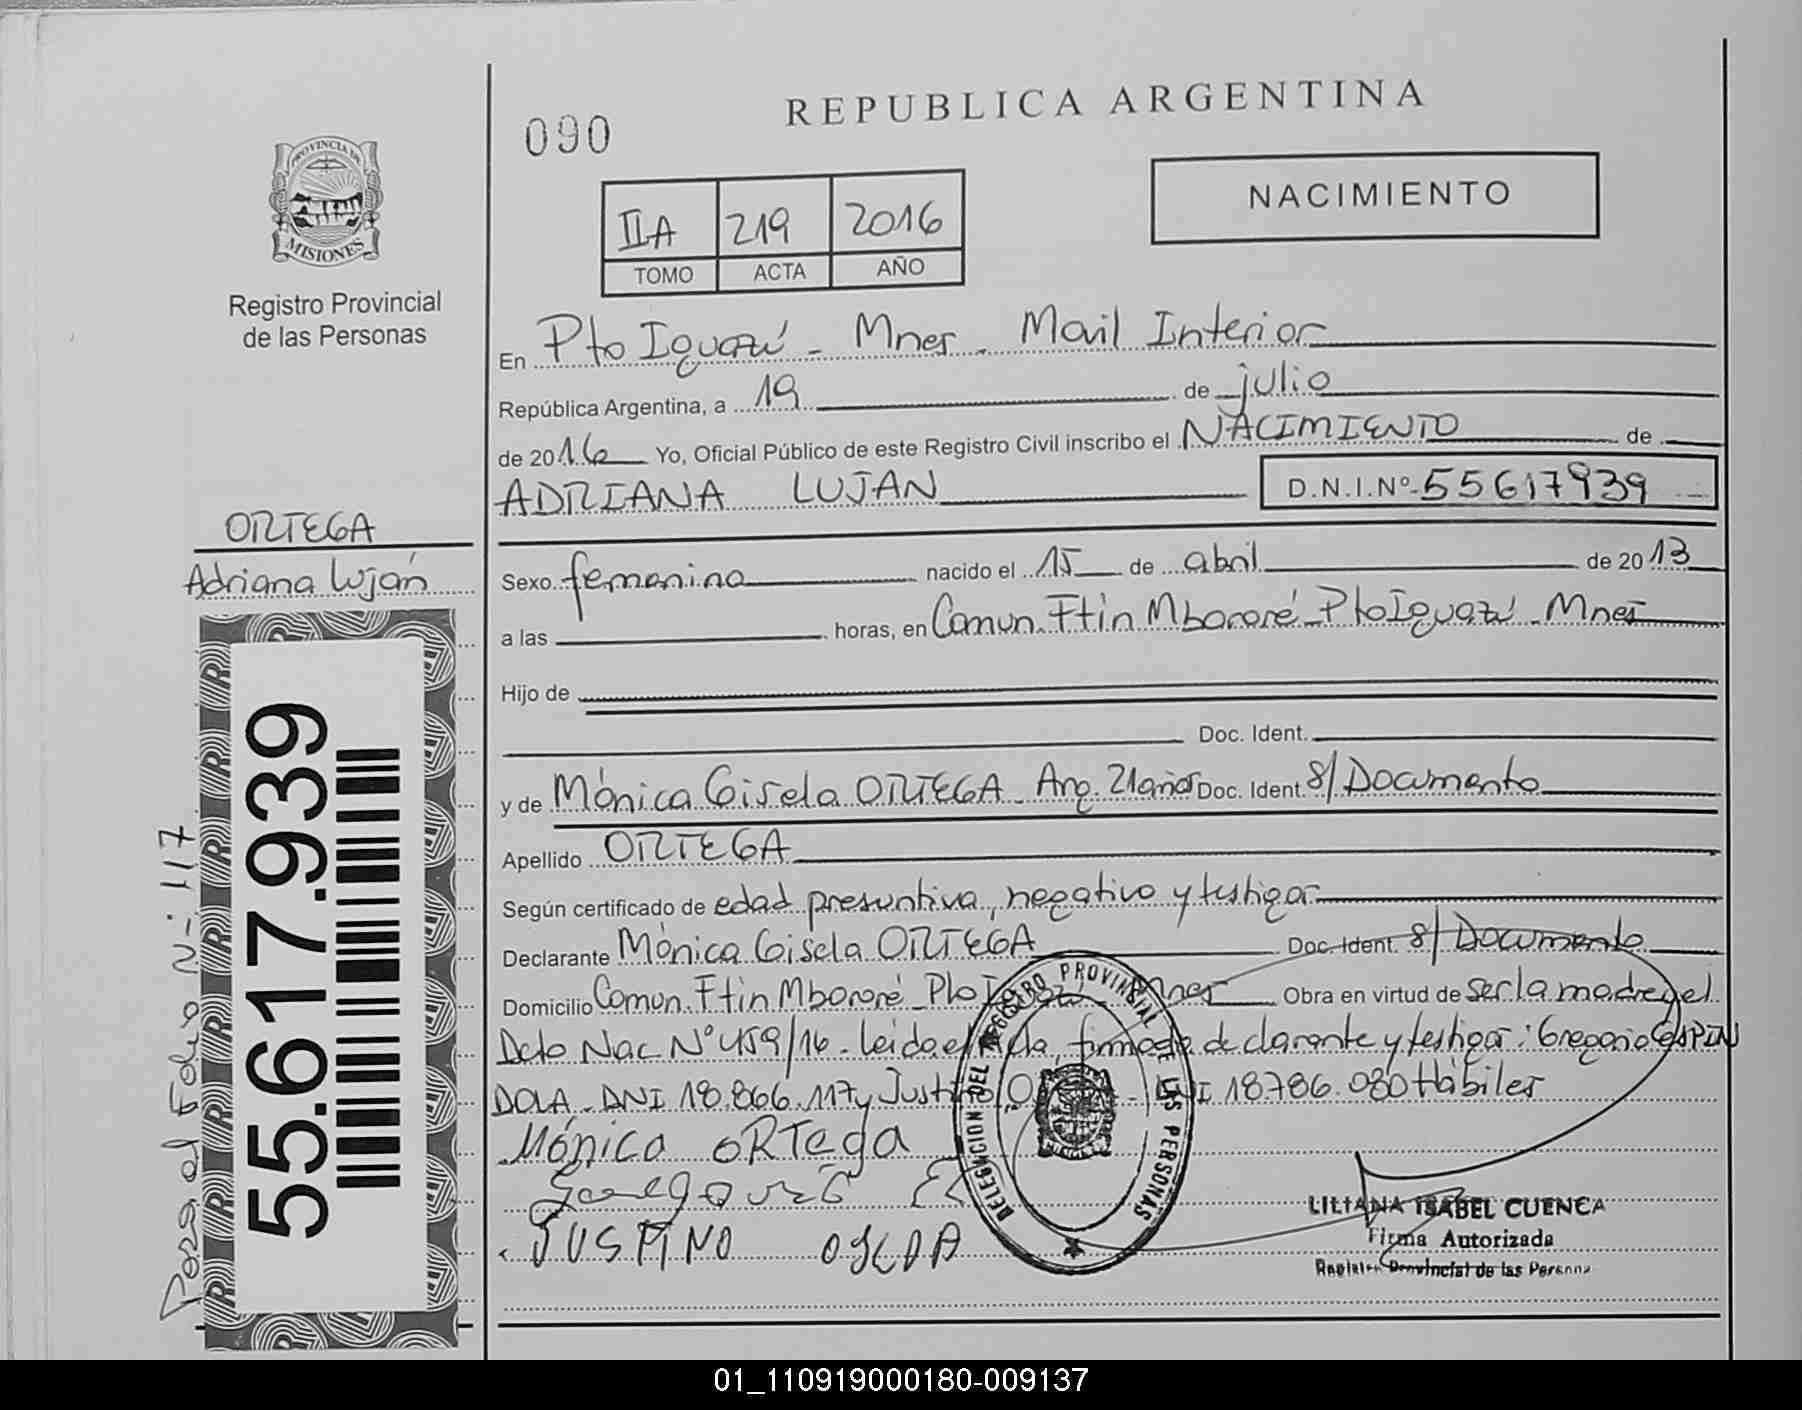 REPUBLICA ARGENTINA
090
NACIMIENTO
PROVINCIA DE
MISIONES
Registro Provincial
de las Personas
IIA 219 2016
TOMO ACTA AÑO
En Pto Iguazú - Mnes. Movil Interior
República Argentina, a 19 de julio
de 2016 Yo, Oficial Público de este Registro Civil inscribo el NACIMIENTO de
ADRIANA LUJAN D.N.I.Nº 55617939
ORTEGA
Adriana Luján
Sexo femenino nacido el 15 de abril de 2013
a las horas, en Comun. Ftin Mbororé - Pto Iguazú - Mnes
Hijo de
Doc. Ident.
y de Mónica Gisela ORTEGA - Arg. 21años Doc. Ident. S/Documento
Apellido ORTEGA
Según certificado de edad presuntiva, negativo y testigos
Declarante Mónica Gisela ORTEGA Doc. Ident. S/Documento
Domicilio Comun. Ftin Mbororé - Pto Mnes Obra en virtud de ser la madre y el
Dcto Nac Nº 459/16 - Leida el Acta, firma declarante y testigos: Gregorio ESPIN
DOLA - DNI 18.866.117 y Justino DNI 18786.080 Hábiles
Mónica ORTega
JUSTINO
DELEGACION DEL REGISTRO PROVINCIAL DE LAS PERSONAS
LILIANA ISABEL CUENCA
Firma Autorizada
Registro Provincial de las Personas
55.617.939
Pasa al Folio Nº 117
01_110919000180-009137